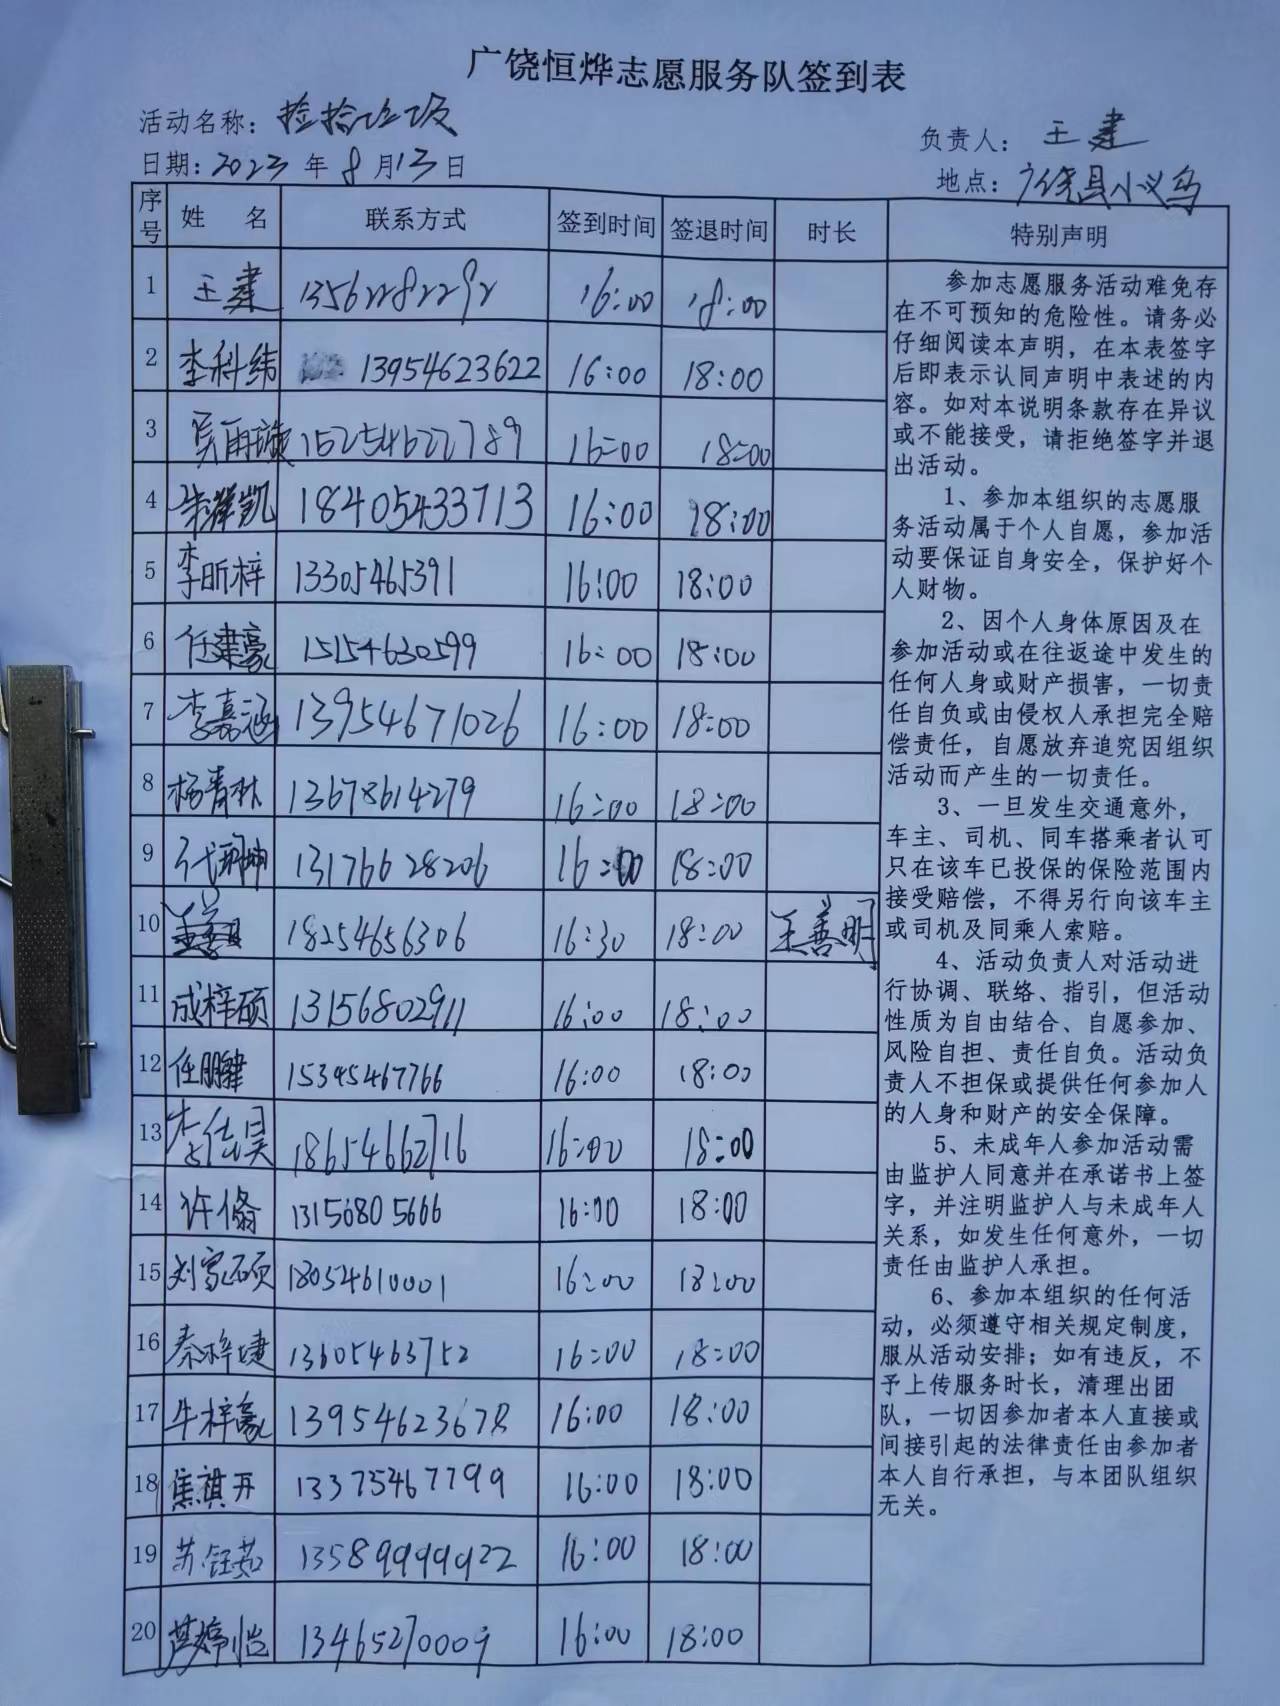 广饶恒烨志愿服务队签到表
活动名称：捡拾垃圾
负责人：王建
日期：2023年8月13日
地点：广饶县小义乌
序号 姓 名 联系方式 签到时间 签退时间 时长 特别声明
1 王建 13562282292 16:00 18:00
2 李科纬 13954623622 16:00 18:00
3 吴雨璇 15254622789 16:00 18:00
4 朱祥凯 18405433713 16:00 18:00
5 李昕梓 13305465391 16:00 18:00
6 任建豪 15154630599 16:00 18:00
7 李嘉涵 13954671026 16:00 18:00
8 杨青林 13678614279 16:00 18:00
9 13176628206 16:00 18:00
10 18254656306 16:30 18:00 王善明
11 成梓硕 13156802911 16:00 18:00
12 任鹏肆 15345467766 16:00 18:00
13 李佳昊 18654662716 16:00 18:00
14 许翛 13156805666 16:00 18:00
15 刘家硕 18054610001 16:00 18:00
16 秦梓婕 13605463752 16:00 18:00
17 牛梓豪 13954623678 16:00 18:00
18 焦祺丹 13375467799 16:00 18:00
19 苏钰茹 13589999922 16:00 18:00
20 13465270009 16:00 18:00
参加志愿服务活动难免存
在不可预知的危险性。请务必
仔细阅读本声明，在本表签字
后即表示认同声明中表述的内
容。如对本说明条款存在异议
或不能接受，请拒绝签字并退
出活动。
1、参加本组织的志愿服
务活动属于个人自愿，参加活
动要保证自身安全，保护好个
人财物。
2、因个人身体原因及在
参加活动或在往返途中发生的
任何人身或财产损害，一切责
任自负或由侵权人承担完全赔
偿责任，自愿放弃追究因组织
活动而产生的一切责任。
3、一旦发生交通意外，
车主、司机、同车搭乘者认可
只在该车已投保的保险范围内
接受赔偿，不得另行向该车主
或司机及同乘人索赔。
4、活动负责人对活动进
行协调、联络、指引，但活动
性质为自由结合、自愿参加、
风险自担、责任自负。活动负
责人不担保或提供任何参加人
的人身和财产的安全保障。
5、未成年人参加活动需
由监护人同意并在承诺书上签
字，并注明监护人与未成年人
关系，如发生任何意外，一切
责任由监护人承担。
6、参加本组织的任何活
动，必须遵守相关规定制度，
服从活动安排；如有违反，不
予上传服务时长，清理出团
队，一切因参加者本人直接或
间接引起的法律责任由参加者
本人自行承担，与本团队组织
无关。